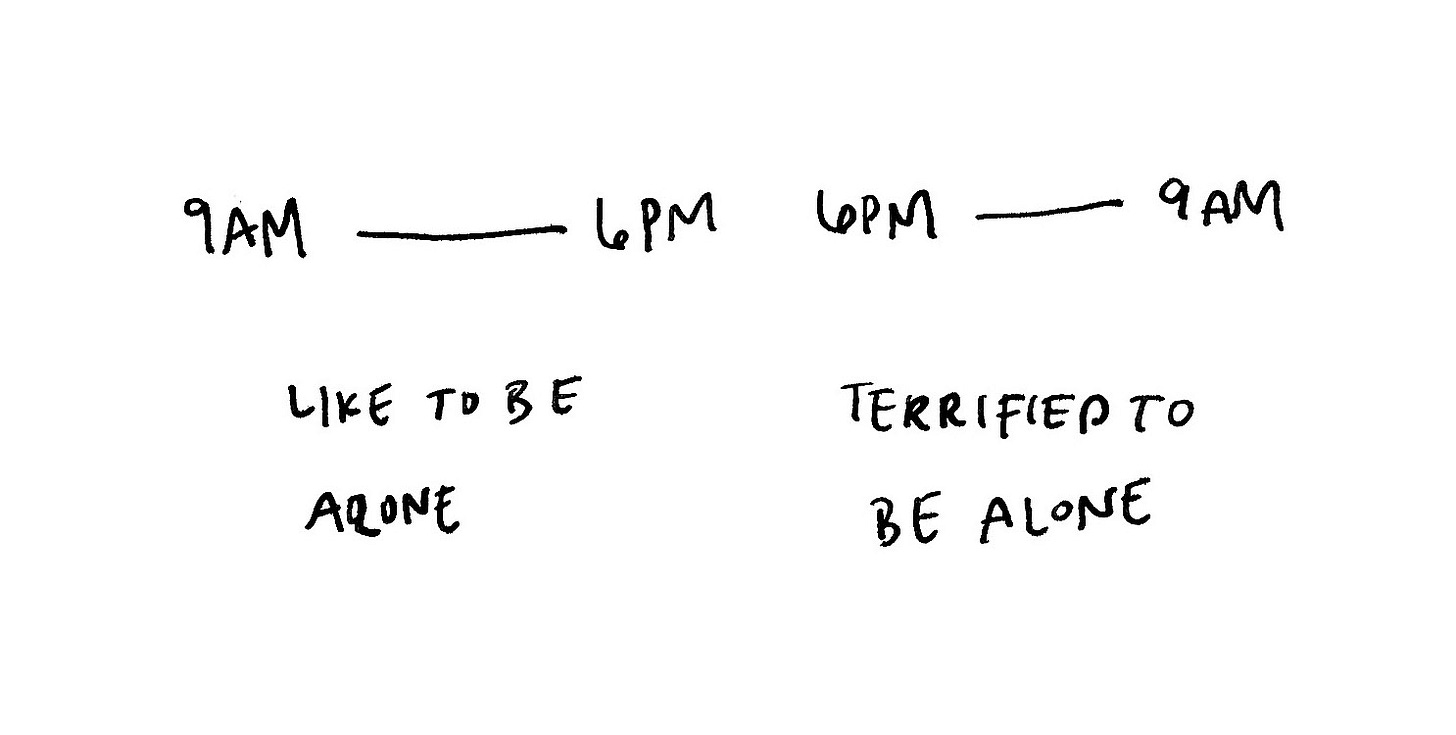 9AM — 6PM
6PM — 9AM
LIKE TO BE
ALONE
TERRIFIED TO
BE ALONE